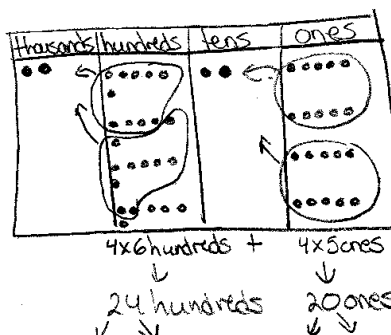 thousands hundreds tens ones
4x6hundreds + 4x5ones
24 hundreds 20 ones